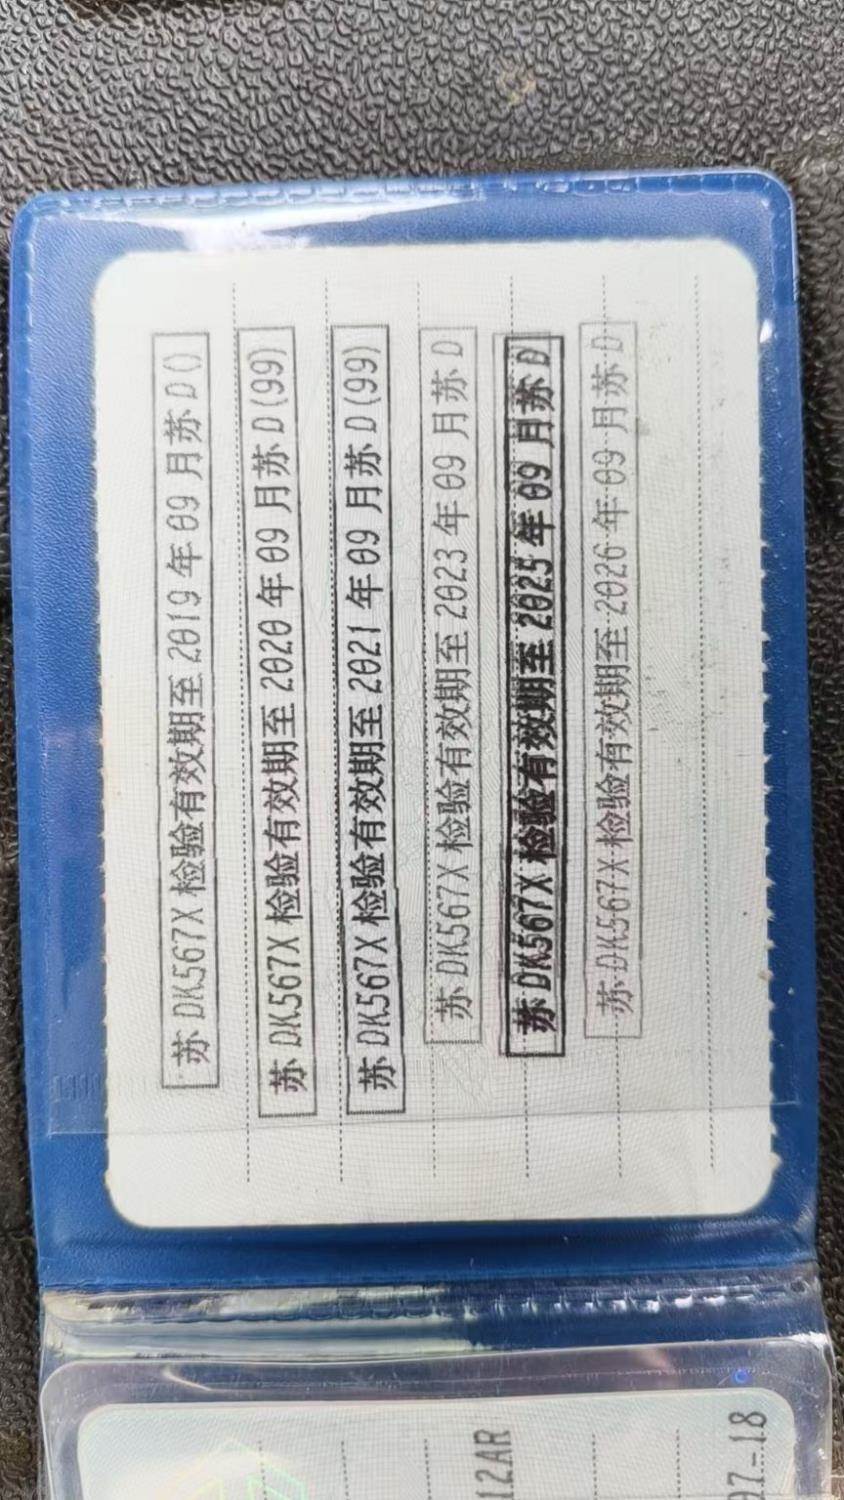 苏DK567X检验有效期至2019年09月苏D()
苏DK567X检验有效期至2020年09月苏D(99)
苏DK567X检验有效期至2021年09月苏D(99)
苏DK567X检验有效期至2023年09月苏D
苏DK567X检验有效期至2025年09月苏D
苏DK567X检验有效期至2026年09月苏D
12AR
97-18